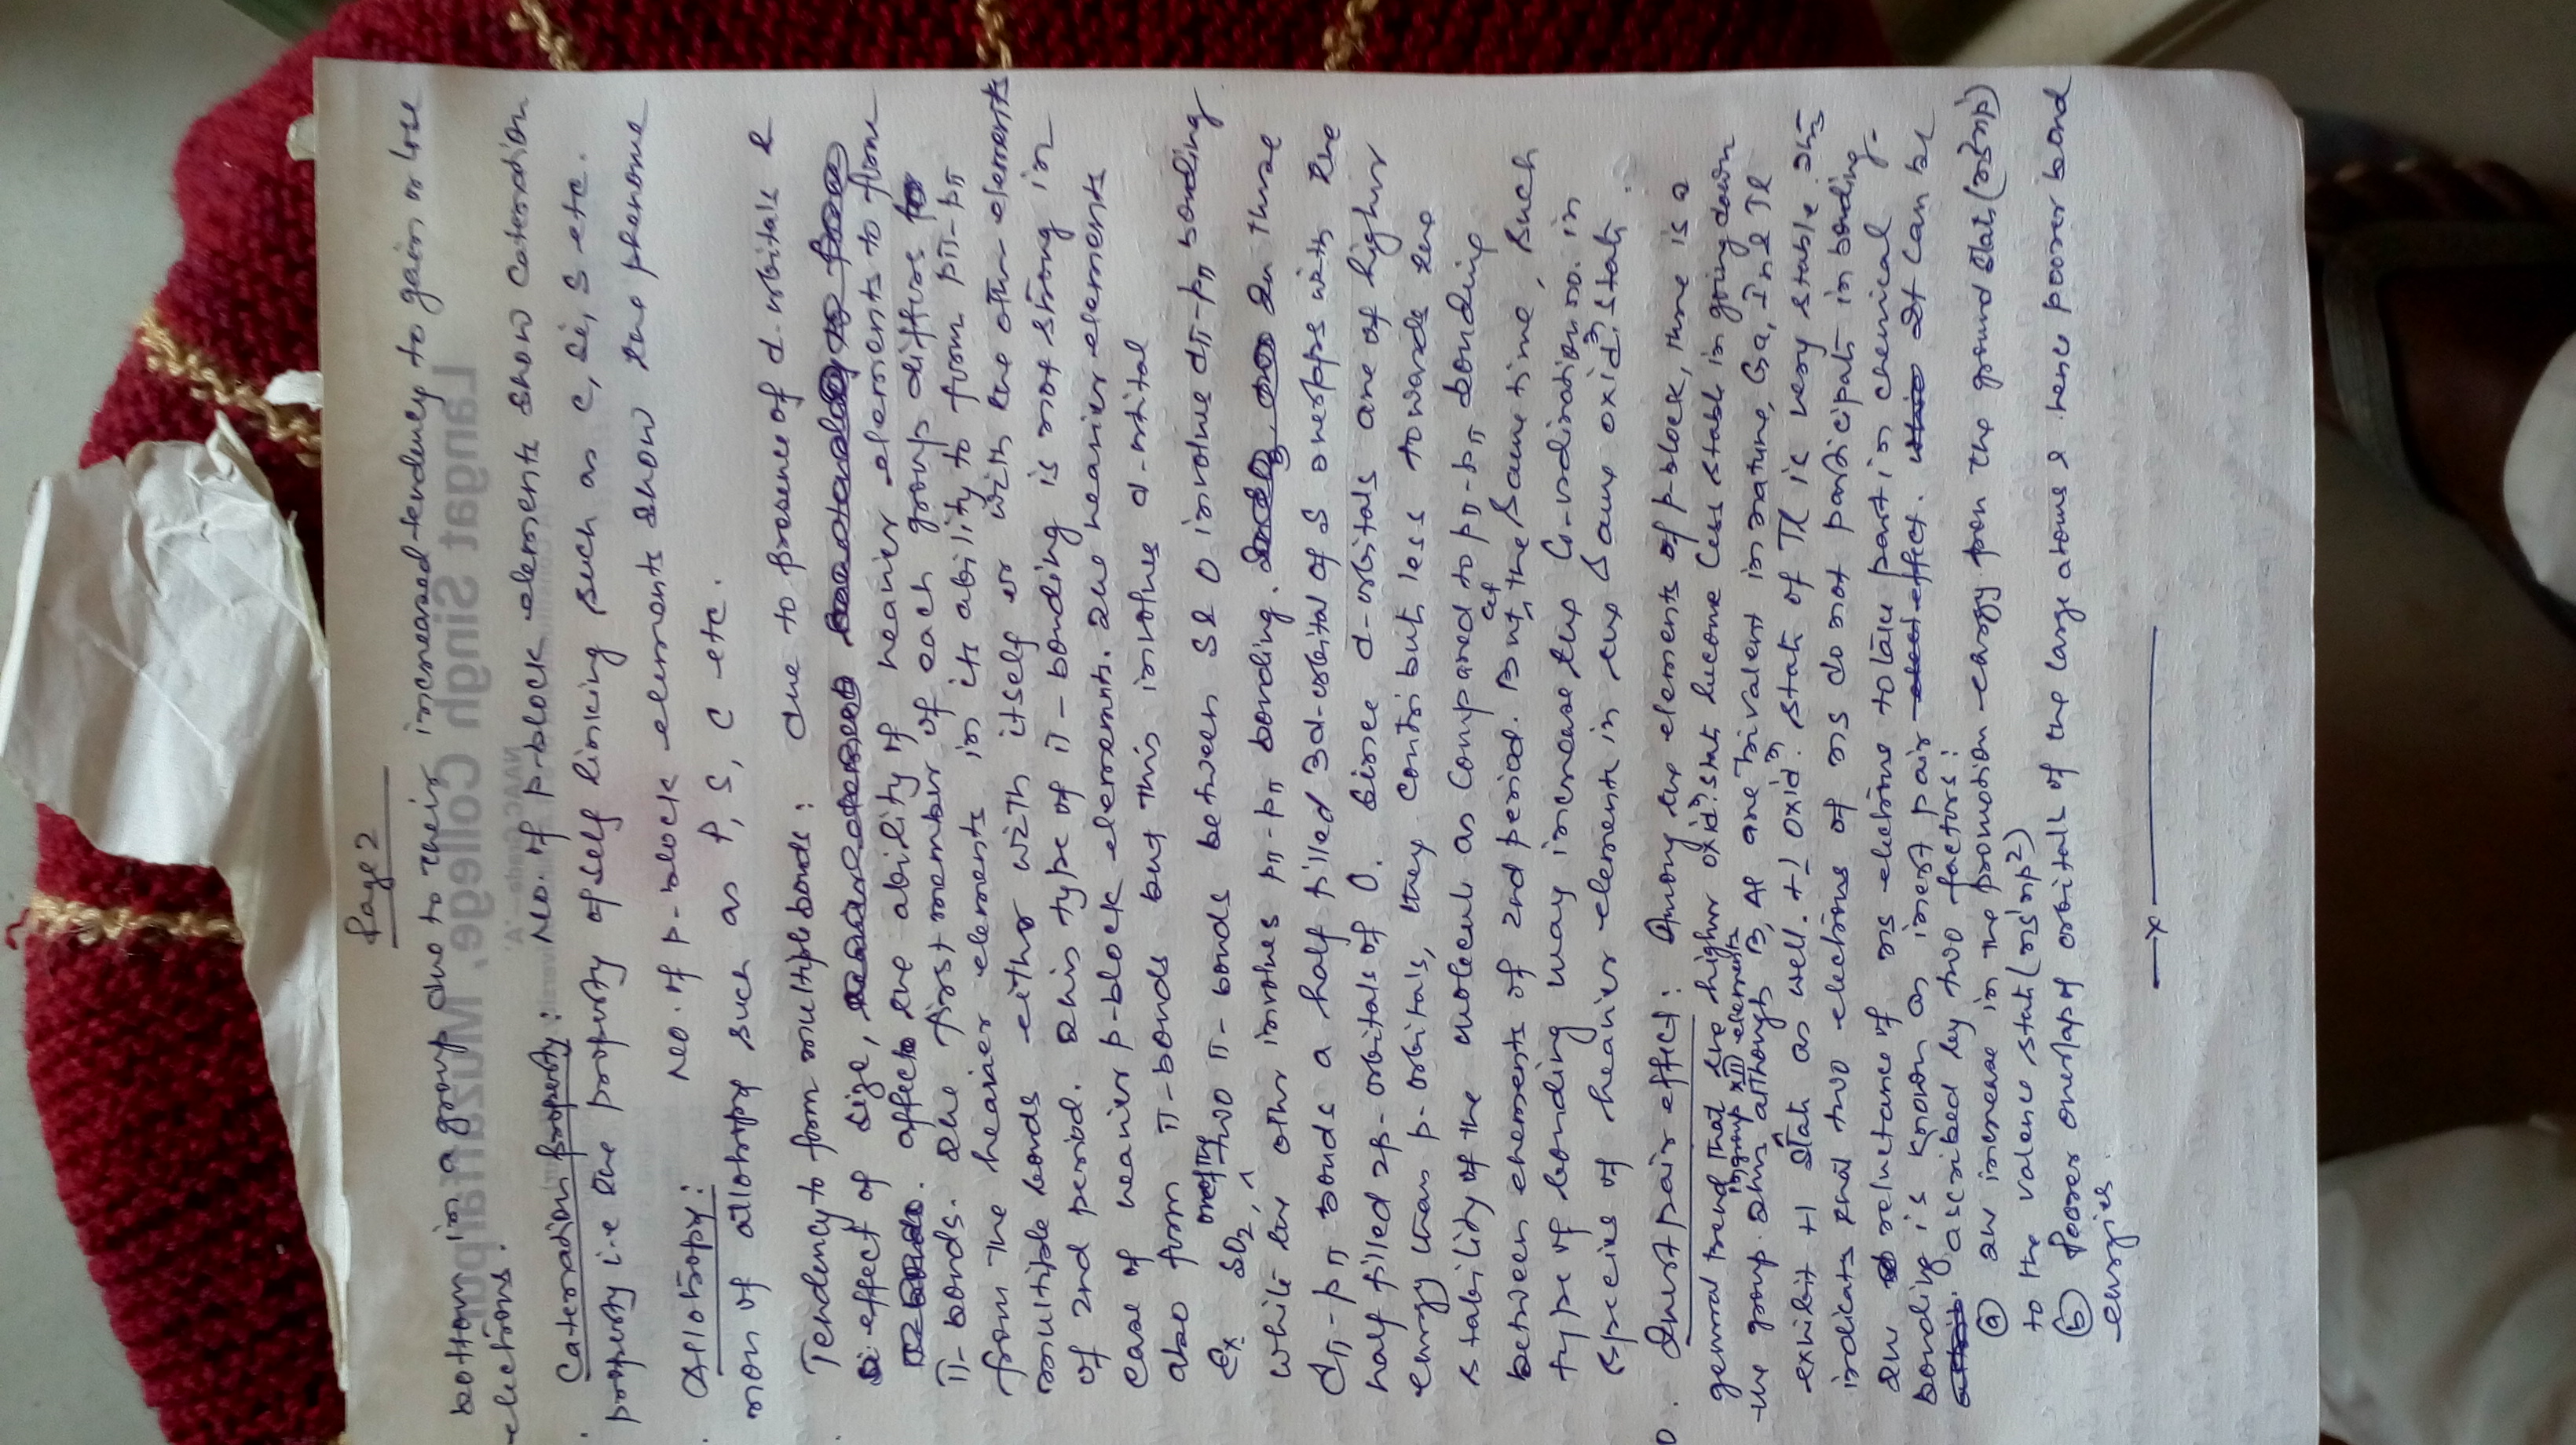 Page 2
bottom in a group due to their increased tendency to gain or lose
electrons.
Catenation property: No. of p-block elements show catenation
property i.e the property of self linking such as C, Si, S etc.
Allotropy: No. of p-block elements show the phenome
non of allotropy such as P, S, C etc.
Tendency to form multiple bonds: due to presence of d-orbitals &
effect of size, affects the ability of heavier elements to form
π-bonds. The first member of each group differs
from the heavier elements in its ability to form pπ-pπ
multiple bonds either with itself or with the other elements
of 2nd period. This type of π-bonding is not strong in
case of heavier p-block elements. The heavier elements
also form π-bonds but this involves d-orbital
Ex SO2, one of the two π-bonds between S & O involve dπ-pπ bonding
while the other involves pπ-pπ bonding. In these
dπ-pπ bonds a half filled 3d-orbital of S overlaps with the
half filled 2p-orbitals of O. Since d-orbitals are of higher
energy than p-orbitals, they contribut less towards the
stability of the molecule as compared to pπ-pπ bonding
between elements of 2nd period. But at the same time, such
type of bonding may increase the Co-ordination no. in
species of heavier elements in the same oxidn state.
Inert pair effect: Among the elements of p-block, there is a
general trend that the higher oxidn state become less stable in going down
the group. Thus although in group XIII elements B, Al are trivalent in nature, Ga, In & Tl
exhibit +1 state as well. +1 oxidn state of Tl is very stable.
indicats that two electrons of ns do not participate in bonding.
The reluctance of ns electrons to take part in chemical
bonding is known as inert pair effect. It can be
ascribed by two factors:
(a) an increase in the promotion energy from the ground state (ns2np1)
to the valence state (ns1np2)
(b) Poorer overlap of orbitals of the large atoms & hence poorer bond
energies.
—x—
Langat Singh College, Muzaffarpur
NAAC Grade - 'A'